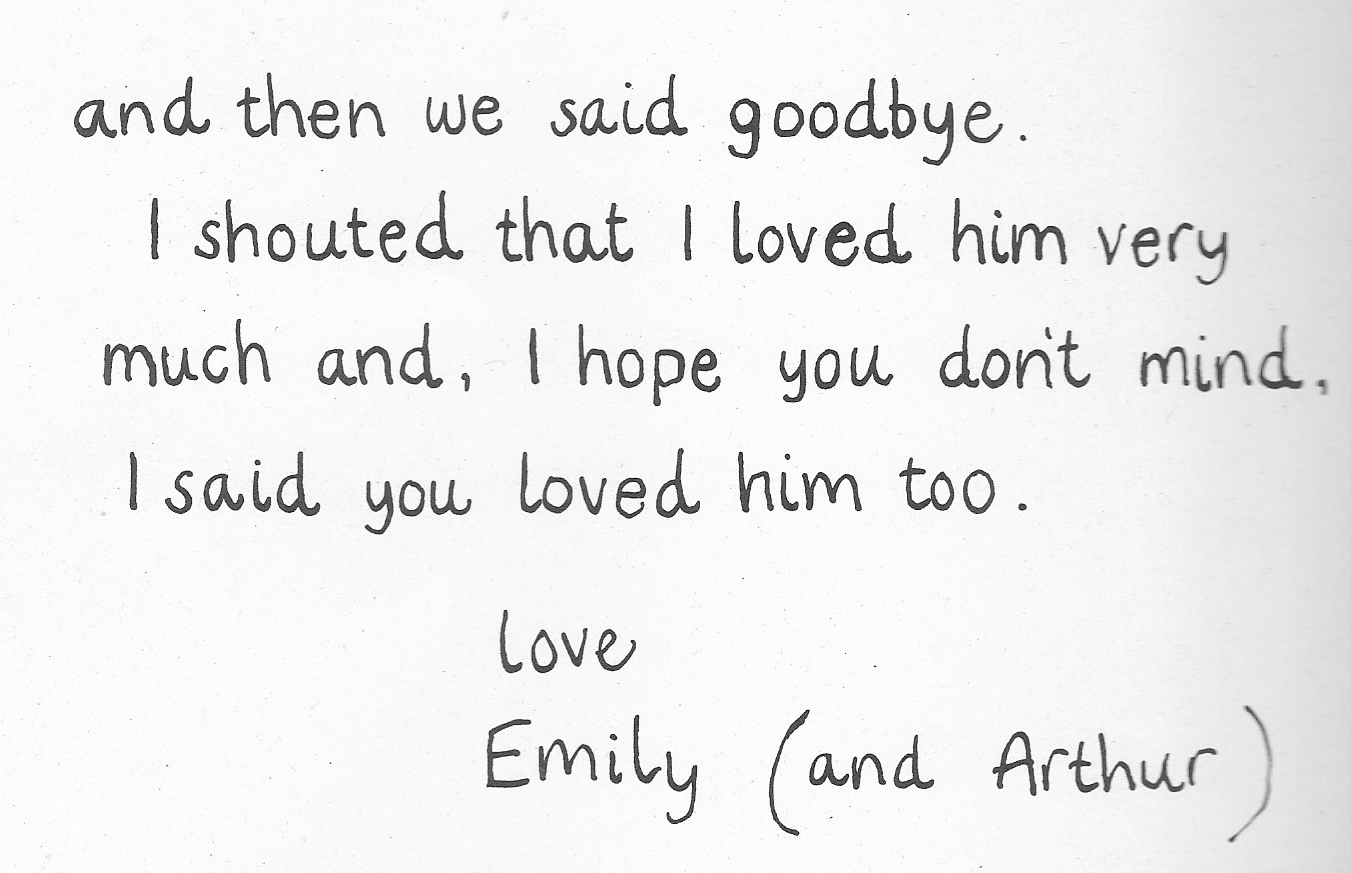 and then we said goodbye.
I shouted that I loved him very
much and, I hope you don't mind,
I said you loved him too.
love
Emily (and Arthur)